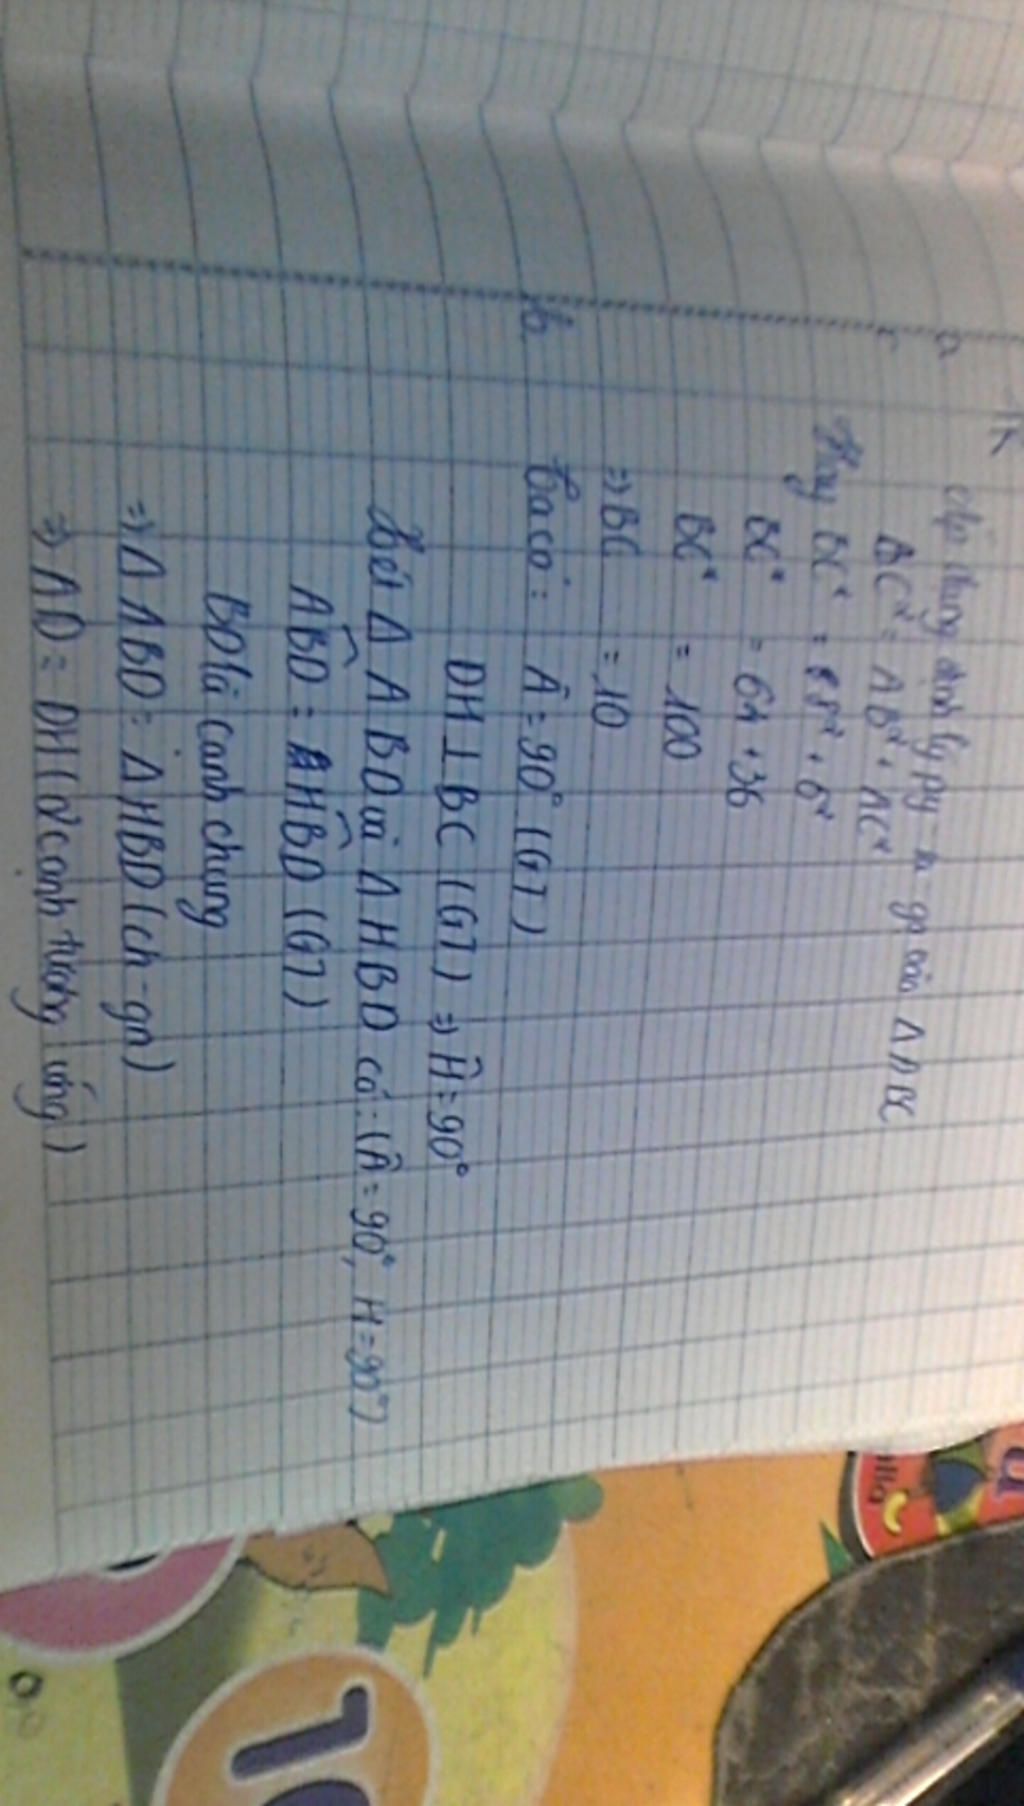 a
Áp dụng định lý py-ta-go vào Δ ABC
BC² = AB² + AC²
Thay BC² = 8² + 6²
BC² = 64 + 36
BC² = 100
=> BC = 10
b, Ta có: Â = 90° (GT)
DH ⊥ BC (GT) => Ĥ = 90°
Xét Δ ABD và Δ HBD có: (Â = 90°, H = 90°)
ABD = HBD (GT)
BD là cạnh chung
=> Δ ABD = Δ HBD (ch - gn)
=> AD = DH (2 cạnh tương ứng)
illa
10